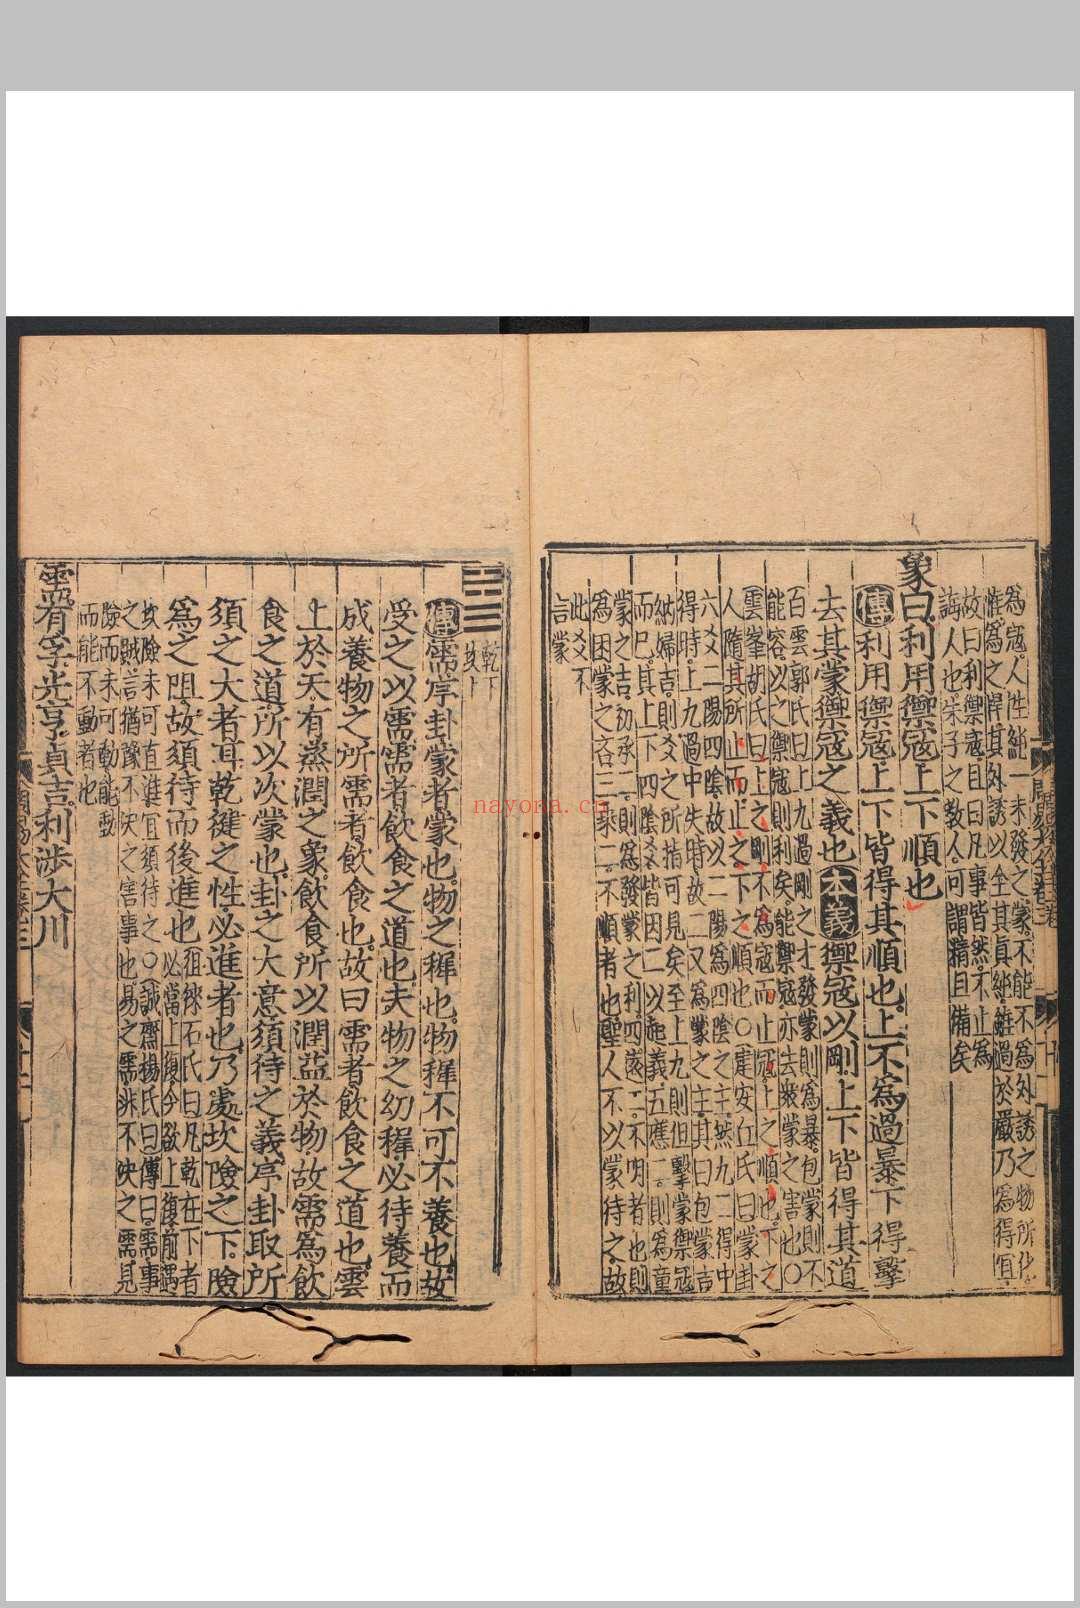 為寇人性純一未發之蒙不能不為外誘之物所化
惟為之捍其外誘以全其真純雖過於嚴乃為得宜
故曰利禦寇且曰凡事皆然不止為
誨人也朱子之教人可謂精且備矣
象曰利用禦寇上下順也
傳利用禦寇上下皆得其順也上不為過暴下得擊
去其蒙禦寇之義也本義禦寇以剛上下皆得其道
百雲郭氏曰上九過剛之才發蒙則為暴包蒙則不
能容以之禦寇則利矣能禦寇亦去蒙之害也〇
雲峯胡氏曰上之剛不為寇而止寇上之順也下之
人隨其所止而止之下之順也〇建安丘氏曰蒙卦
六爻二陽四陰故以二陽為四陰之主然九二得中
得時上九過中失時故二又為蒙之主其曰包蒙吉
納婦吉則爻之所指可見矣至上九則但擊蒙禦寇
而巳其上下四陰爻皆因二以起義五應二則為童
蒙之吉初承二則為發蒙之利四遠二不明者也則
為困蒙之吝三乘二不順者也聖人不以蒙待之故
此爻不
言蒙
乾下
坎上
傳需序卦蒙者蒙也物之穉也物穉不可不養也故
受之以需需者飲食之道也夫物之幼穉必待養而
成養物之所需者飲食也故曰需者飲食之道也雲
上於天有蒸潤之象飲食所以潤益於物故需為飲
食之道所以次蒙也卦之大意須待之義序卦取所
須之大者耳乾健之性必進者也乃處坎險之下險
為之阻故須待而後進也
徂徠石氏曰凡乾在下者
必當上復今欲上復前遇
坎險未可直進宜須待之〇誠齋楊氏曰傳曰需事
之賊言猶豫不決之害事也易之需非不決之需見
險而未可動能動
而能不動者也
需有孚光亨貞吉利涉大川
nayona.cn